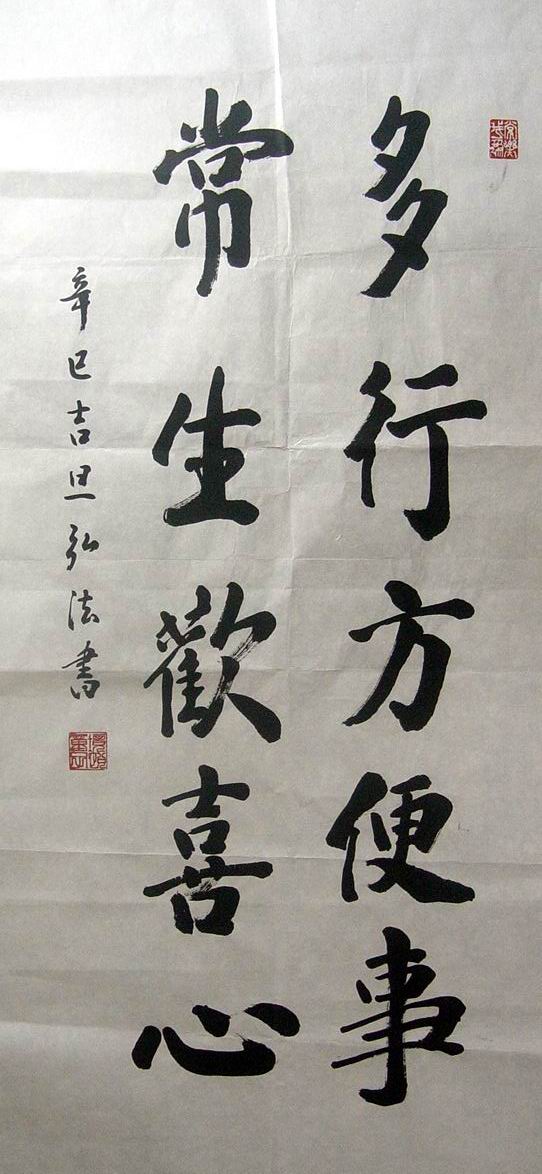 多行方便事
常生歡喜心
辛巳吉旦弘法書